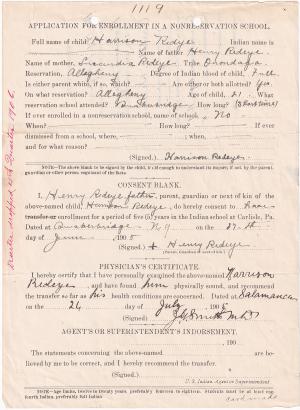 1119
APPLICATION FOR ENROLLMENT IN A NONRESERVATION SCHOOL.
Full name of child, Harrison Redeye Indian name is
Name of father Henry Redeye
Name of mother, Lucinda Redeye Tribe Onondaga
Reservation, Allegheny Degree of Indian blood of child, Full
Is either parent white, if so, which? Are either or both allotted? Yes.
On what reservation? Allegheny Age of child, 21 What
reservation school attended? How long?
If ever enrolled in a nonreservation school, name of school, No
When? How long? If ever
dismissed from a school, where, ; when,
and for what reason?
(Signed.) Harrison Redeye
NOTE.—The above blank to be signed by the child, if of enough to understand its import; if not, by the parent, guardian or other proper representative of the child.
CONSENT BLANK.
I, Henry Redeye father, parent, guardian or next of kin of the
above-named child, Harrison Redeye, do hereby consent to
transfer or enrollment for a period of five (5) years in the Indian school at Carlisle, Pa.
Dated at N.Y on the 17th
day of June, 1905
(Signed.) + Henry Redeye
(Parent, guardian, or next of kin.)
PHYSICIAN'S CERTIFICATE.
I hereby certify that I have personally examined the above-named Harrison
Redeye, and have found him physically sound, and recommend
the transfer so far as his health conditions are concerned. Dated at Salamanca
on the 24 day of July, 1905
(Signed)
AGENT'S OR SUPERINTENDENT'S INDORSEMENT.
, 190
The statements concerning the above-named are be-
lieved by me to be correct, and I hereby recommend the transfer.
(Signed.)
U. S. Indian Agent or Superintendent
NOTE.—Age limits, twelve to twenty years, preferably fourteen to eighteen. Students must be at least one-fourth Indian, preferably full Indian